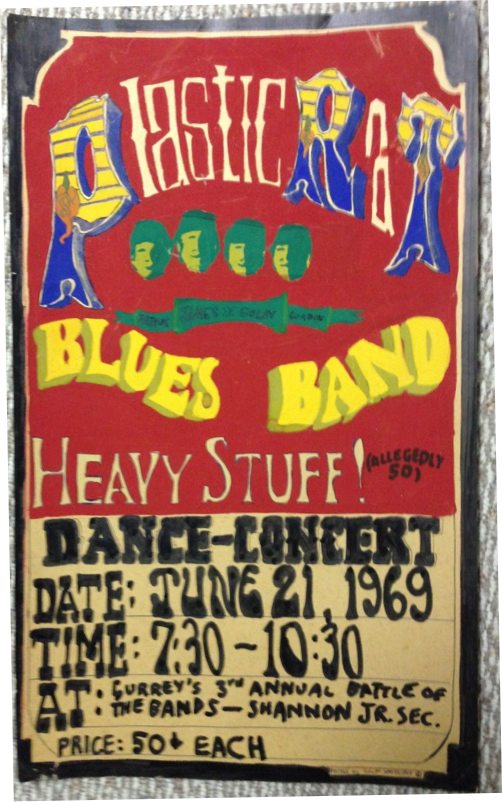 PlasticRaT
BLUES BAND
HEAVY STUFF! (ALLEGEDLY SO)
DANCE-CONCERT
DATE: JUNE 21, 1969
TIME: 7:30 ~ 10:30
AT: GURREY'S 3rd ANNUAL BATTLE OF
THE BANDS — SHANNON JR. SEC.
PRICE: 50¢ EACH